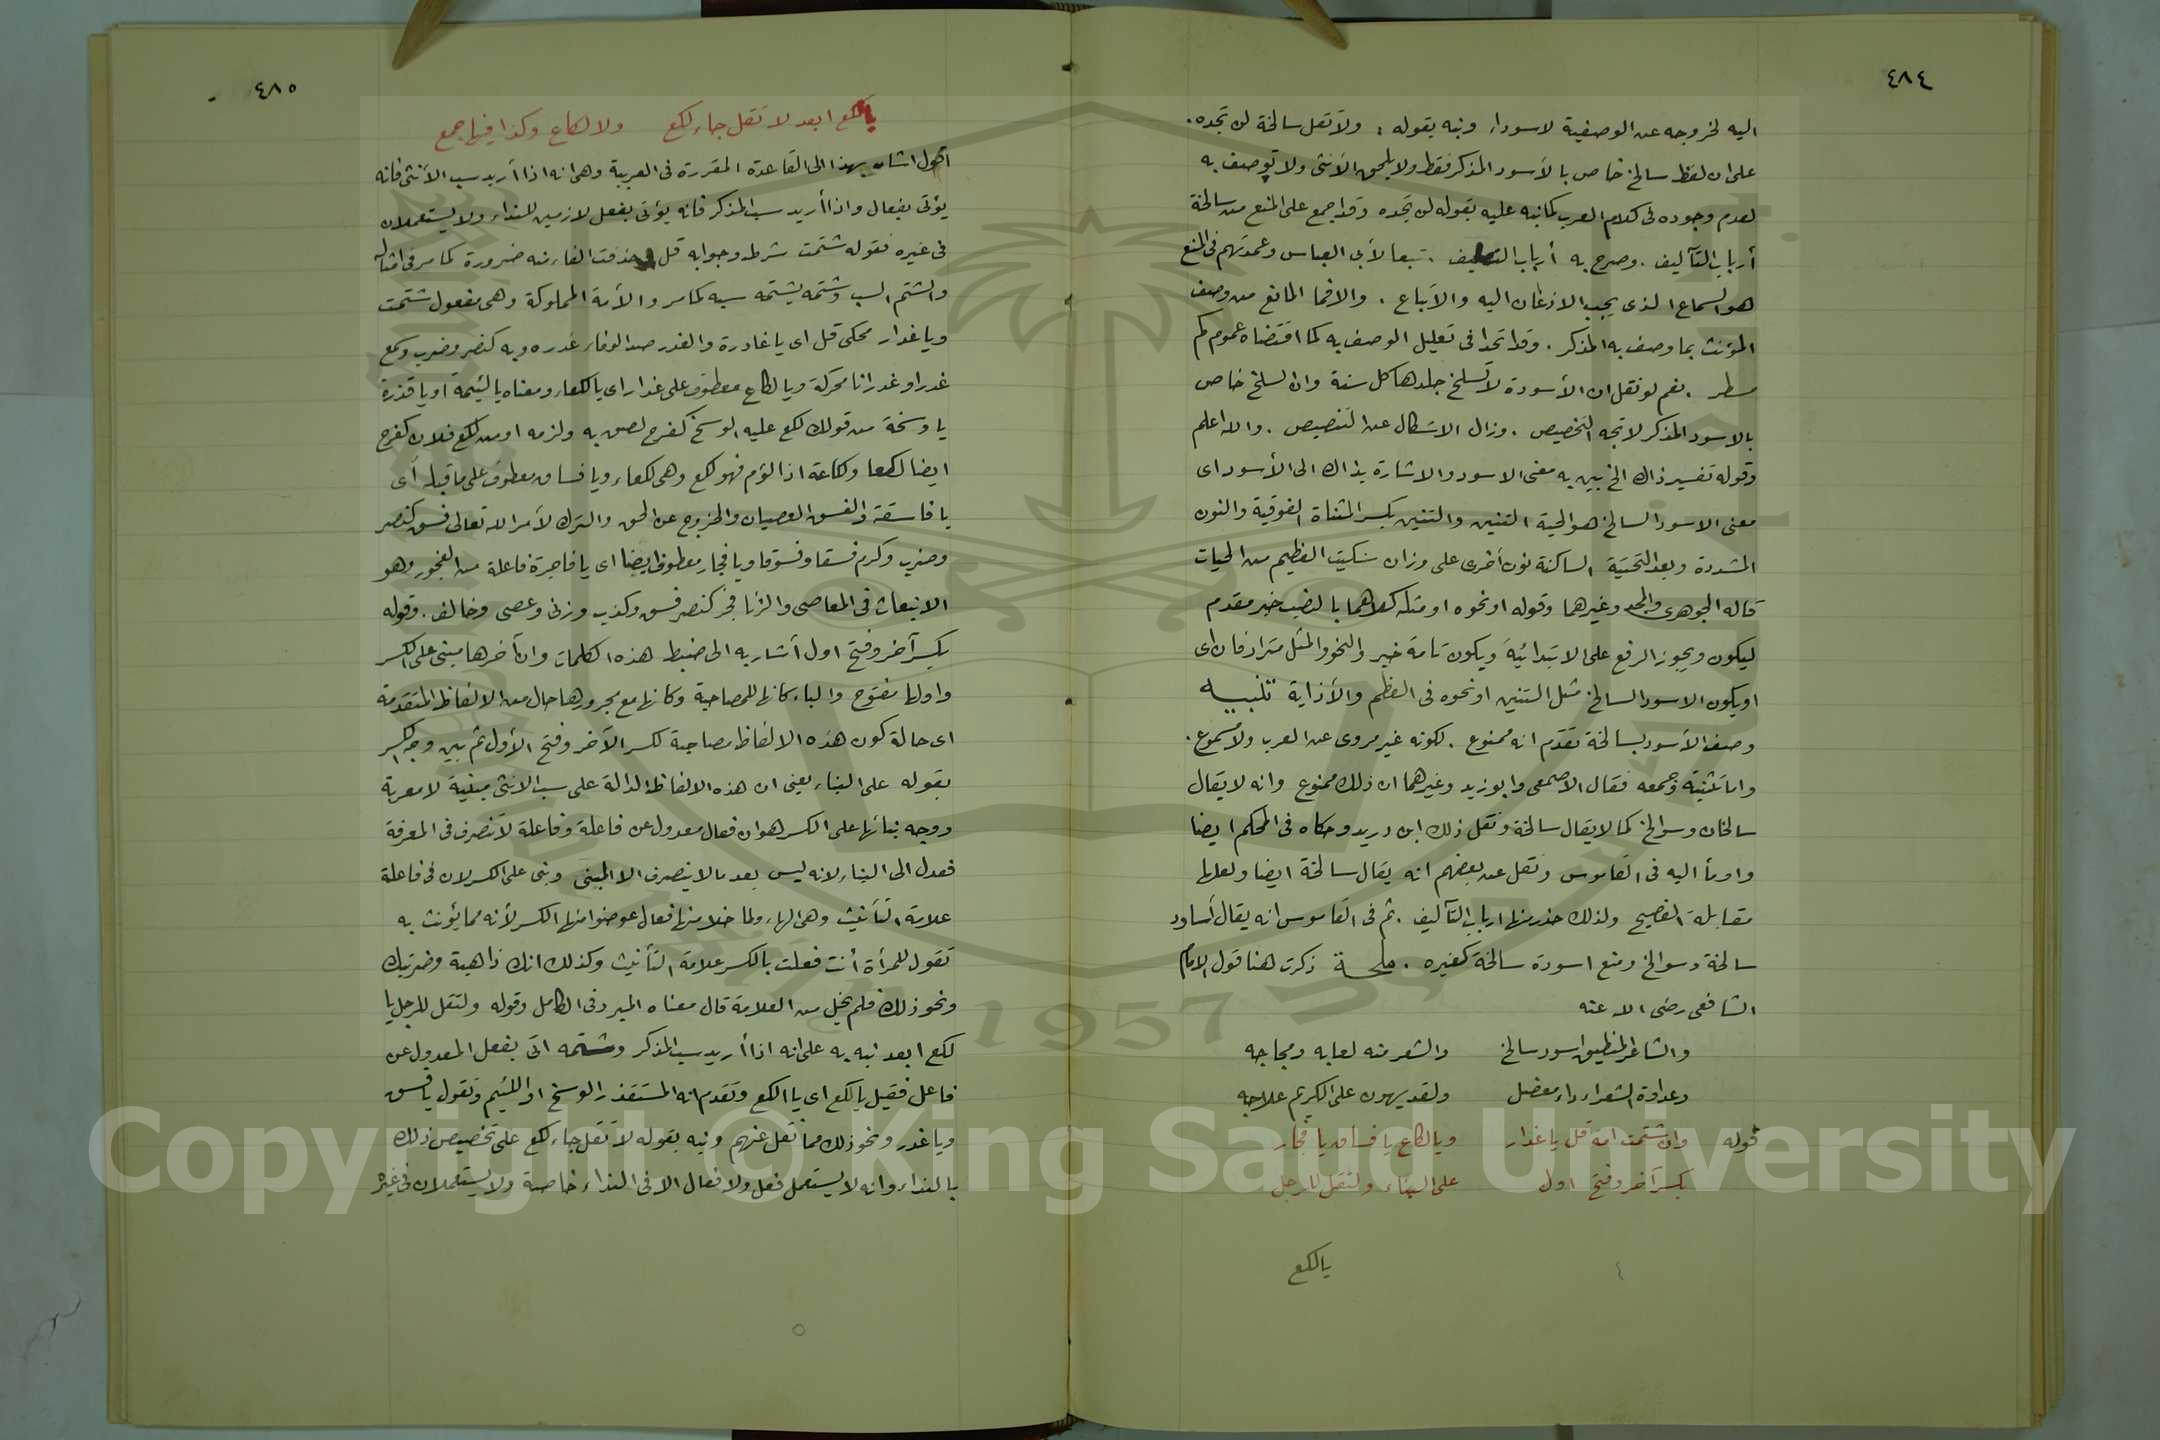 ٤٨٤
اليه لخروجه عن الوصفية لاسوداء ونبه بقوله : ولا تقل سالخة لن تجده .
على ان لفظ سالخ خاص بالأسود المذكر فقط ولا يلحق الأنثى ولا توصف به
لعدم وجوده فى كلام العرب كما نبه عليه بقوله لن تجده وقد اجمع على المنع من سالخة
أرباب التآليف . وصرح به أرباب التصانيف . تبعا لأبى العباس وعمدتهم فى المنع
هو السماع الذى يجب الاذعان اليه والاتباع . والا فما المانع من وصف
المؤنث بما وصف به المذكر . وقد اتحدا فى تعليل الوصف به كما اقتضاه عموم كم
سطر . نعم لو نقل ان الأسودة لا تسلخ جلدها كل سنة وان السلخ خاص
بالاسود المذكر لاتجه التخصيص . وزال الاشكال عن التنصيص . والله اعلم
وقوله تفسير ذاك الخ بين به معنى الاسود والاشارة بذاك الى الأسود اى
معنى الاسود السالخ هو الحية التنين والتنين بكسر المثناة الفوقية والنون
المشددة وبعد التحتية الساكنة نون أخرى على وزان سكيت العظيم من الحيات
قاله الجوهرى والمجد وغيرهما وقوله او نحوه او مثله كلاهما بالنصب خبر مقدم
ليكون ويجوز الرفع على الابتدائية ويكون تامة خبر والنحو والمثل مترادفان اى
او يكون الاسود السالخ مثل التنين او نحوه فى العظم والأذاية تنبيه
وصف الأسود بسالخة تقدم انه ممنوع . لكونه غير مروى عن العرب ولا مسموع .
واما تثنيته وجمعه فقال الاصمعى وابو زيد وغيرهما ان ذلك ممنوع وانه لا يقال
سالخان وسوالخ كما لا يقال سالخة ونقل ذلك ابن دريد وحكاه فى المحكم ايضا
واومأ اليه فى القاموس ونقل عن بعضهم انه يقال سالخة ايضا ولعلها
مقابلة الفصيح ولذلك حذر منها ارباب التآليف . ثم فى القاموس انه يقال أساود
سالخة وسوالخ ومنع اسودة سالخة كغيره . ملحة ذكرت هنا قول الامام
الشافعى رضى الله عنه
والشاعر المنطيق اسود سالخ والشعر منه لعابه ومجاجه
وعداوة الشعراء داء معضل ولقد يهون على الكريم علاجه
قوله وان شتمت امة قل يا غدار ويا لكاع يا فساق يا فجار
بكسر آخر وفتح اول على البناء ولتقل للرجل
يا لكع
٤٨٥
يا لكع ابعد لا تقل جاء لكع ولا لكاع وكذا فيها جمع
اقول اشار بهذا الى القاعدة المقررة فى العربية وهى انه اذا أريد سب الأنثى فانه
يؤتى بفعال واذا أريد سب المذكر فانه يؤتى بفعل لازمين للنداء ولا يستعملان
فى غيره فقوله شتمت شرط وجوابه قل حذفت الفاء منه ضرورة كما مر فى امثاله
والشتم السب وشتمه يشتمه سبه كما مر والأمة المملوكة وهى مفعول شتمت
ويا غدار محكى قل اى يا غادرة والغدر ضد الوفاء غدره وبه كنصر وضرب وسمع
غدرا وغدرانا محركة ويا لكاع معطوف على غدار اى يا لكعاء ومعناه يا لئيمة او يا قذرة
يا وسخة من قولك لكع عليه الوسخ كفرح لصق به ولزمه او من لكع فلان كفرح
ايضا لكعا ولكاعة اذا لؤم فهو لكع وهى لكعاء ويا فساق معطوف على ما قبله أى
يا فاسقة والفسق العصيان والخروج عن الحق والترك لأمر الله تعالى فسق كنصر
وضرب وكرم فسقا وفسوقا ويا فجار معطوف ايضا اى يا فاجرة فاعلة من الفجور وهو
الانبعاث فى المعاصى والزنا فجر كنصر فسق وكذب وزنى وعصى وخالف . وقوله
بكسر آخر وفتح اول أشار به الى ضبط هذه الكلمات وان آخرها مبنى على الكسر
واولها مفتوح والباء كانها للمصاحبة وكانها مع مجرورها حال من الالفاظ المتقدمة
اى حالة كون هذه الالفاظ مصاحبة لكسر الآخر وفتح الأول ثم بين وجه الكسر
بقوله على البناء يعنى ان هذه الالفاظ الدالة على سب الانثى مبنية لا معربة
ووجه بنائها على الكسر هو ان فعال معدول عن فاعلة وفاعلة لا تنصرف فى المعرفة
فعدل الى البناء لانه ليس بعد ما لا ينصرف الا المبنى وبنى على الكسر لان فى فاعلة
علامة التأنيث وهى الهاء ولما خلا منها فعال عوضوا منها الكسر لأنه مما يؤنث به
تقول للمرأة أنت فعلت بالكسر علامة التأنيث وكذلك انك ذاهبة وضربتك
ونحو ذلك فلم يخل من العلامة قال معناه المبرد فى الكامل وقوله ولتقل للرجل يا
لكع ابعد نبه به على انه اذا أريد سب المذكر وشتمه اتى بفعل المعدول عن
فاعل فقيل يا لكع اى يا الكع وتقدم انه المستقذر الوسخ او اللئيم وتقول يا فسق
ويا غدر ونحو ذلك مما نقل عنهم ونبه بقوله لا تقل جاء لكع على تخصيص ذلك
بالنداء وانه لا يستعمل فعل ولا فعال الا فى النداء خاصة ولا يستعملان فى غيره
Copyright © King Saud University
1957